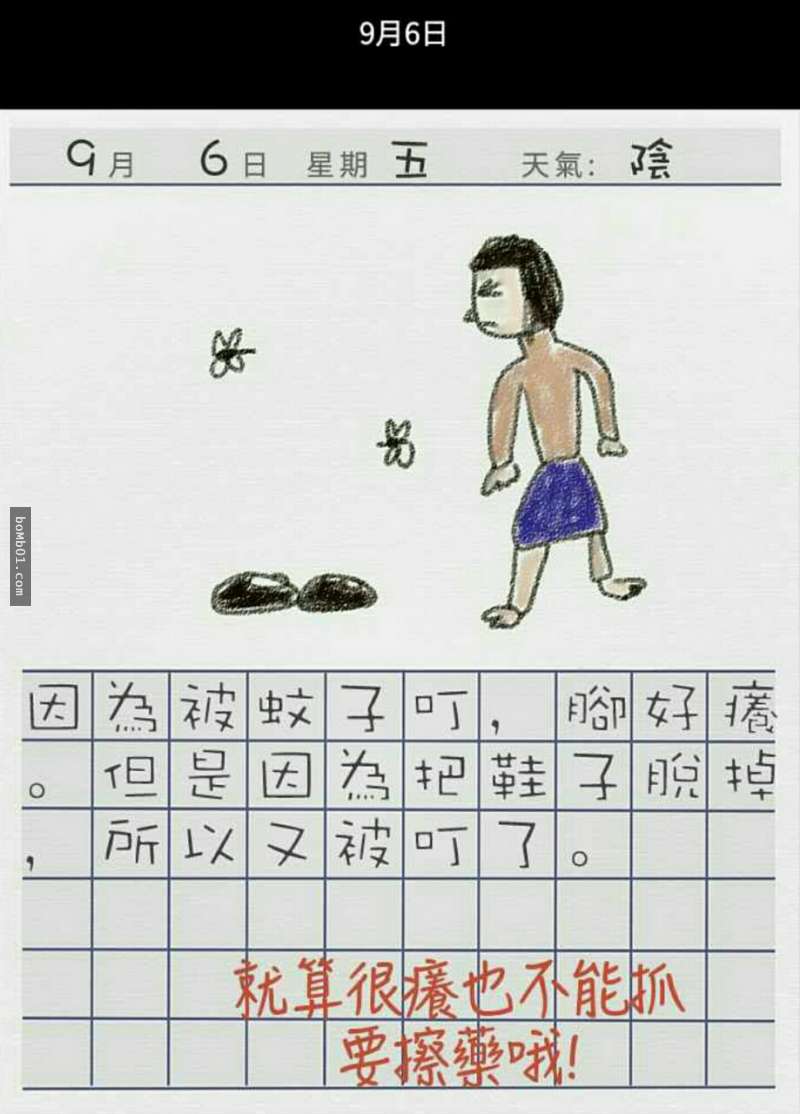 9月6日
9月 6日 星期五 天氣: 陰
boMb01.com
因為被蚊子叮，腳好癢
。但是因為把鞋子脫掉
，所以又被叮了。
就算很癢也不能抓
要擦藥哦!